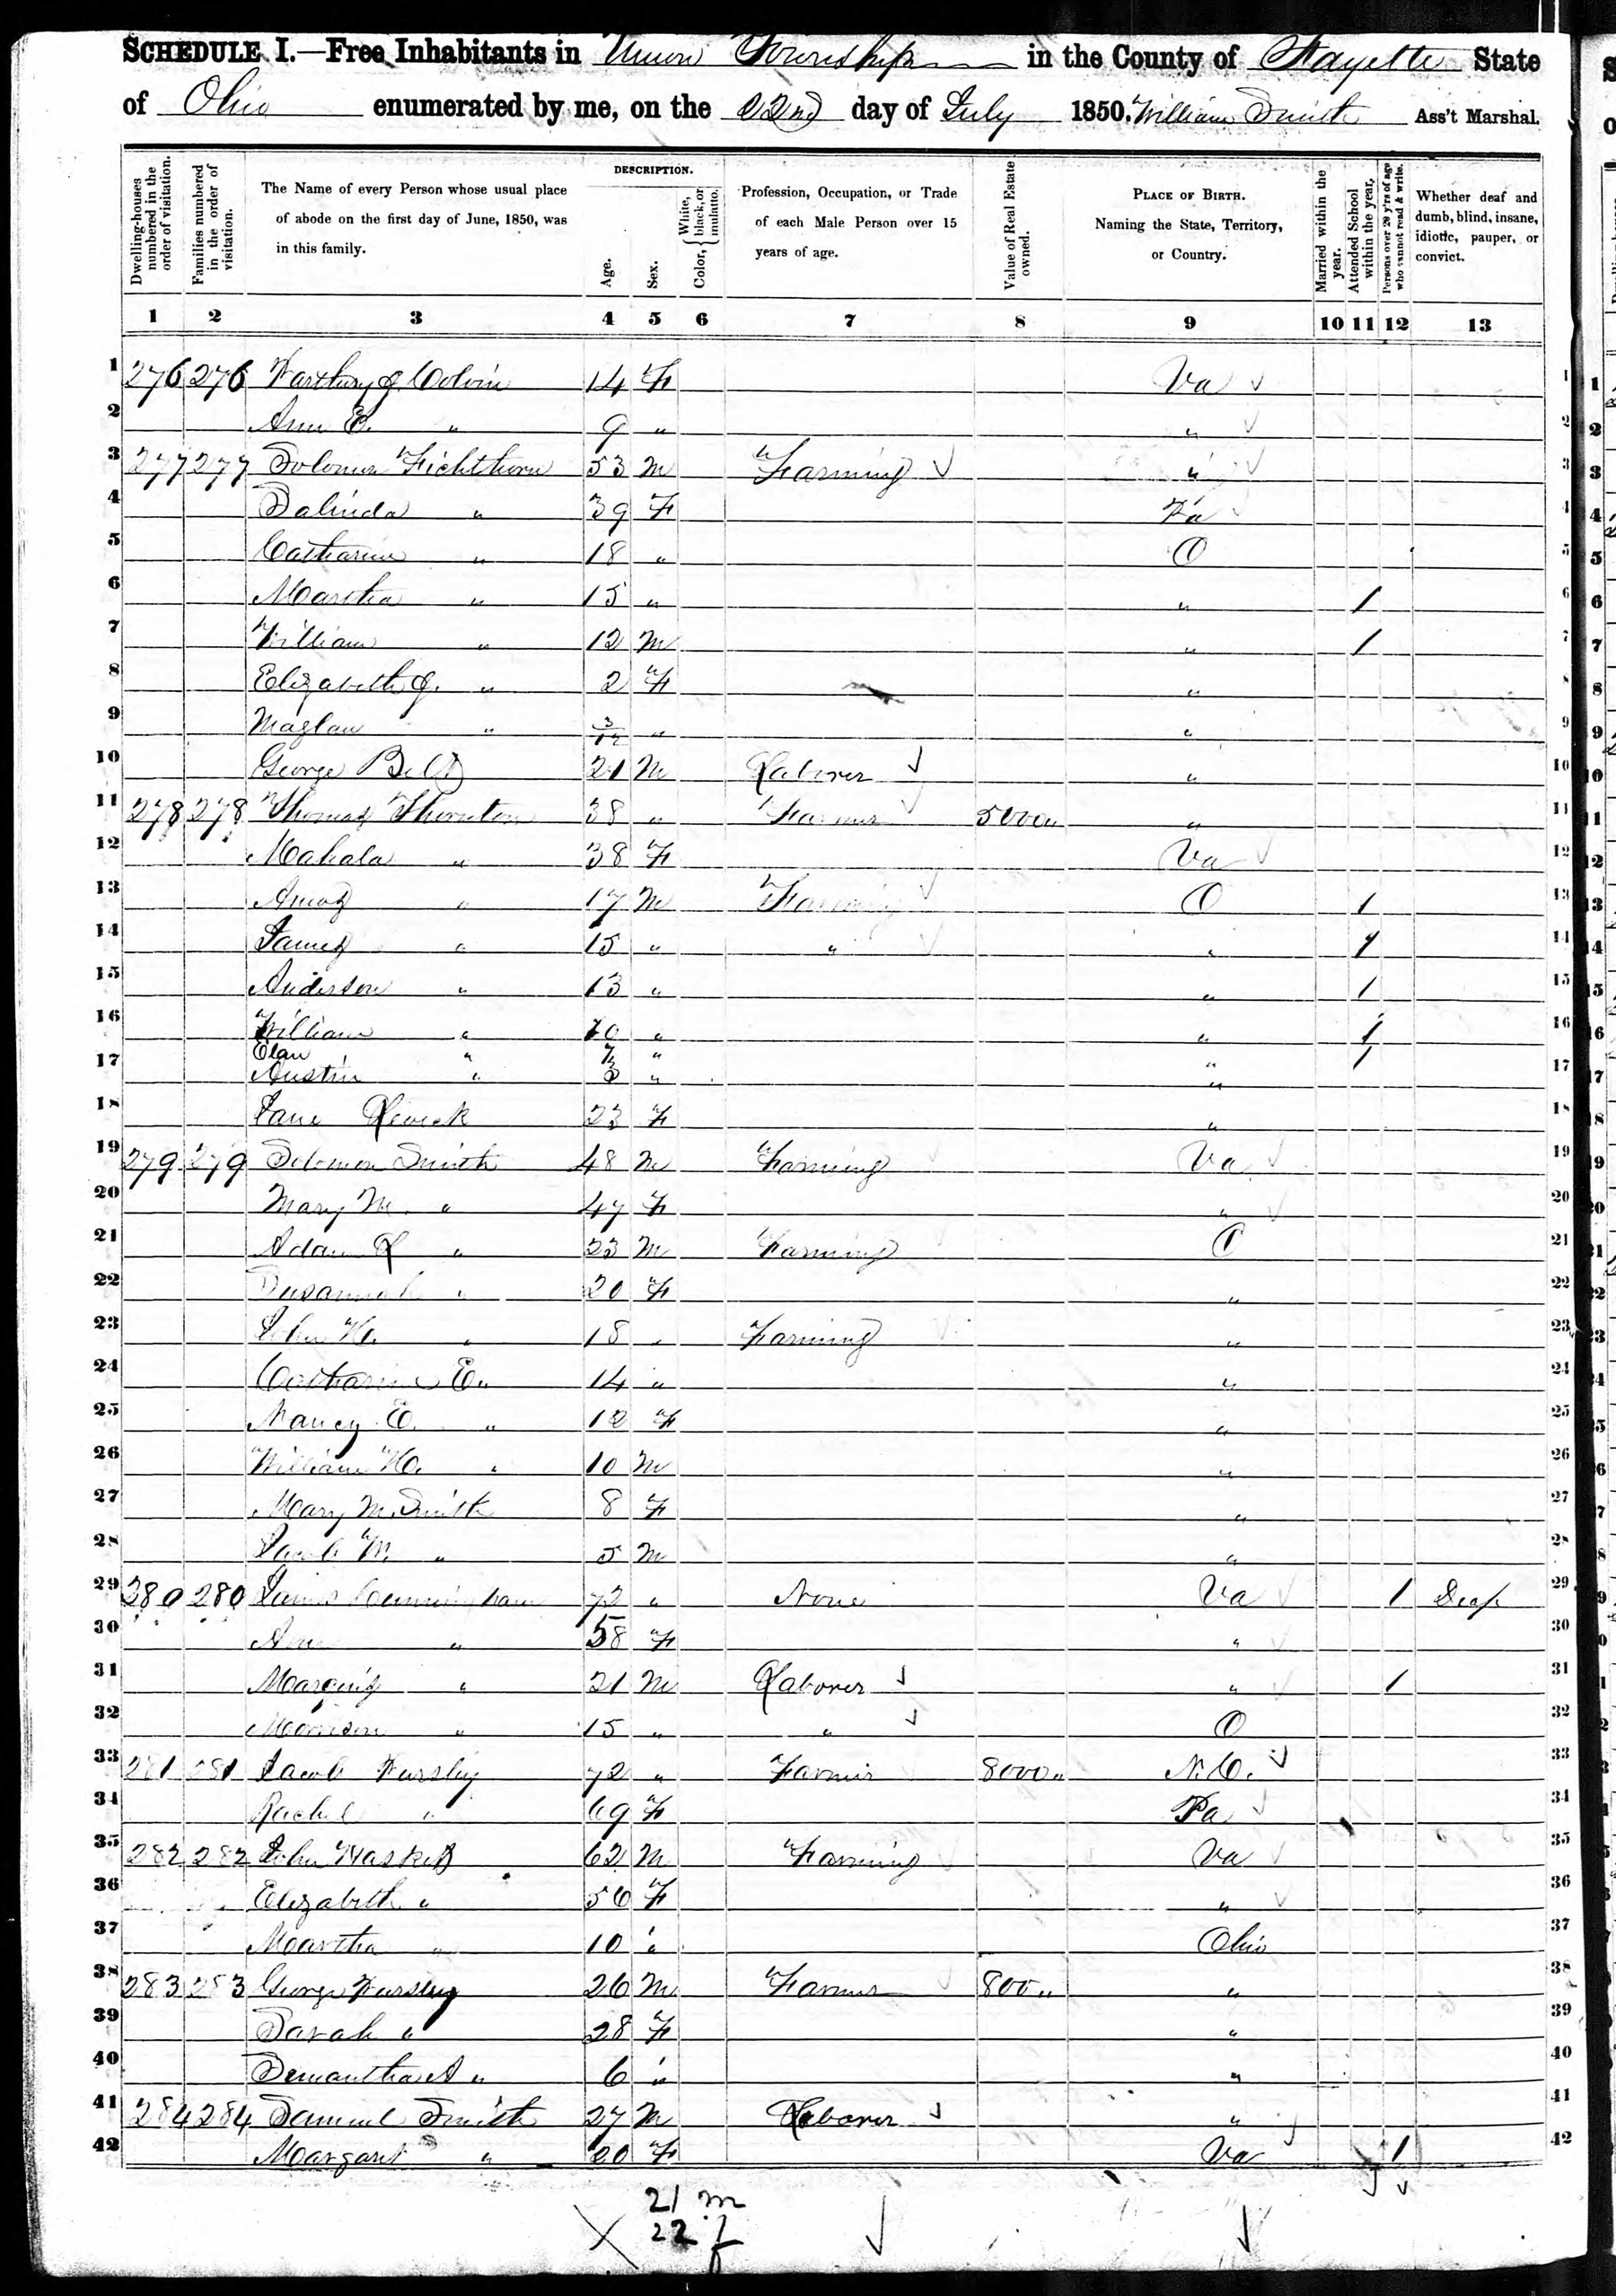 SCHEDULE I.—Free Inhabitants in Union Township in the County of Fayette State
of Ohio enumerated by me, on the 22nd day of July 1850. William Smith Ass't Marshal.
Dwelling-houses numbered in the order of visitation.
Families numbered in the order of visitation.
The Name of every Person whose usual place of abode on the first day of June, 1850, was in this family.
DESCRIPTION.
Age.
Sex.
Color, { White, black, or mulatto.
Profession, Occupation, or Trade of each Male Person over 15 years of age.
Value of Real Estate owned.
PLACE OF BIRTH. Naming the State, Territory, or Country.
Married within the year.
Attended School within the year.
Persons over 20 y'rs of age who cannot read & write.
Whether deaf and dumb, blind, insane, idiotic, pauper, or convict.
1 2 3 4 5 6 7 8 9 10 11 12 13
1 276 276 Colvin 14 F Va 1
2 Ann E. " 9 " " 2
3 277 277 Solomon Fichthorn 53 M Farming " 3
4 39 F Pa 4
5 Catharine " 18 " O 5
6 Martha " 15 " " 1 6
7 William " 12 M " 1 7
8 Elizabeth J. " 2 F " 8
9 " 3/12 " " 9
10 George 21 M Laborer " 10
11 278 278 Thomas Thornton 38 " Farmer 5000" " 11
12 Mahala " 38 F Va 12
13 Amos " 17 M Farming O 1 13
14 James " 15 " " " 1 14
15 Anderson " 13 " " 1 15
16 William " 10 " " 1 16
Elan " 7 " " 1
17 Austin " 3 " " 17
18 Jane 23 F " 18
19 279 279 Solomon Smith 48 M Farming Va 19
20 Mary M. " 47 F " 20
21 Adam L " 23 M Farming O 21
22 Susannah " 20 F " 22
23 John H. " 18 " Farming " 23
24 Catharine E. " 14 " " 24
25 Nancy E. " 12 F " 25
26 William H. " 10 M " 26
27 Mary M. Smith 8 F " 27
28 Jacob M. " 5 M " 28
29 280 280 James Cunningham 72 " None Va 1 Deaf 29
30 Ann " 58 F " 30
31 " 21 M Laborer " 1 31
32 Morrison " 15 " " O 32
33 281 281 Jacob 72 " Farmer 8000" N.C. 33
34 Rachel " 69 F Pa 34
35 282 282 John 62 M Farming Va 35
36 Elizabeth " 56 F " 36
37 Martha " 10 " Ohio 37
38 283 283 George 26 M Farmer 800" " 38
39 Sarah " 28 F " 39
40 Semantha A " 6 " " 40
41 284 284 Samuel Smith 27 M Laborer " 41
42 Margaret " 20 F Va 1 42
21 m
22 f